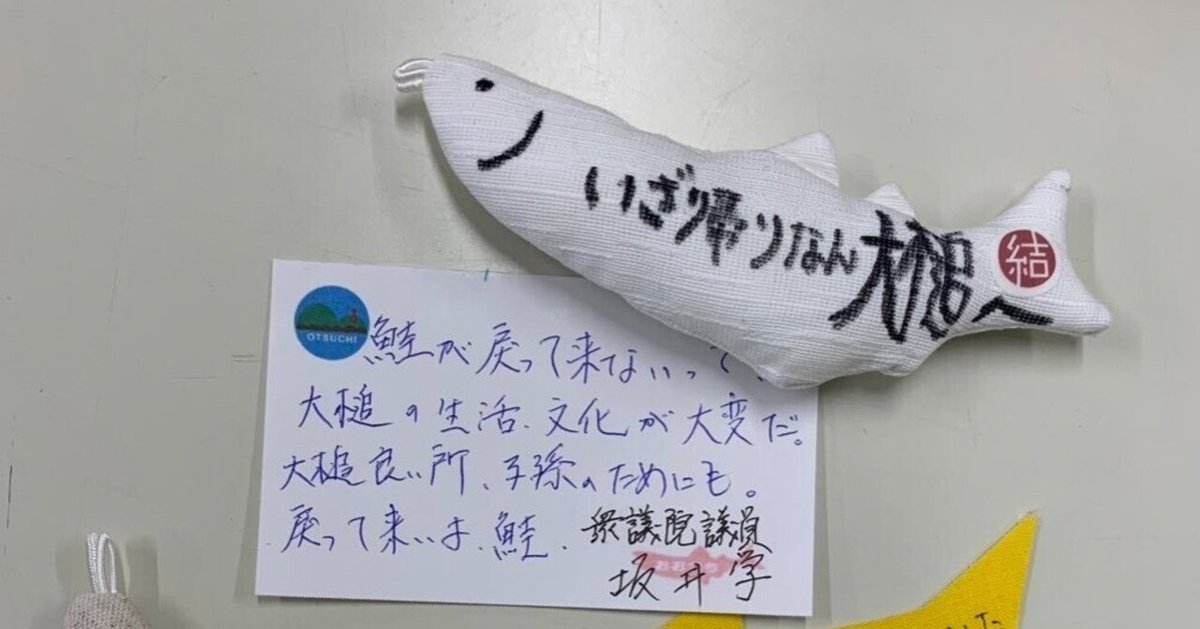 いざ帰りなん大槌へ
結
OTSUCHI
鮭が戻って来ないって
大槌の生活、文化が大変だ。
大槌良い所、子孫のためにも。
戻って来いよ、鮭、
衆議院議員
おお ち
坂井学